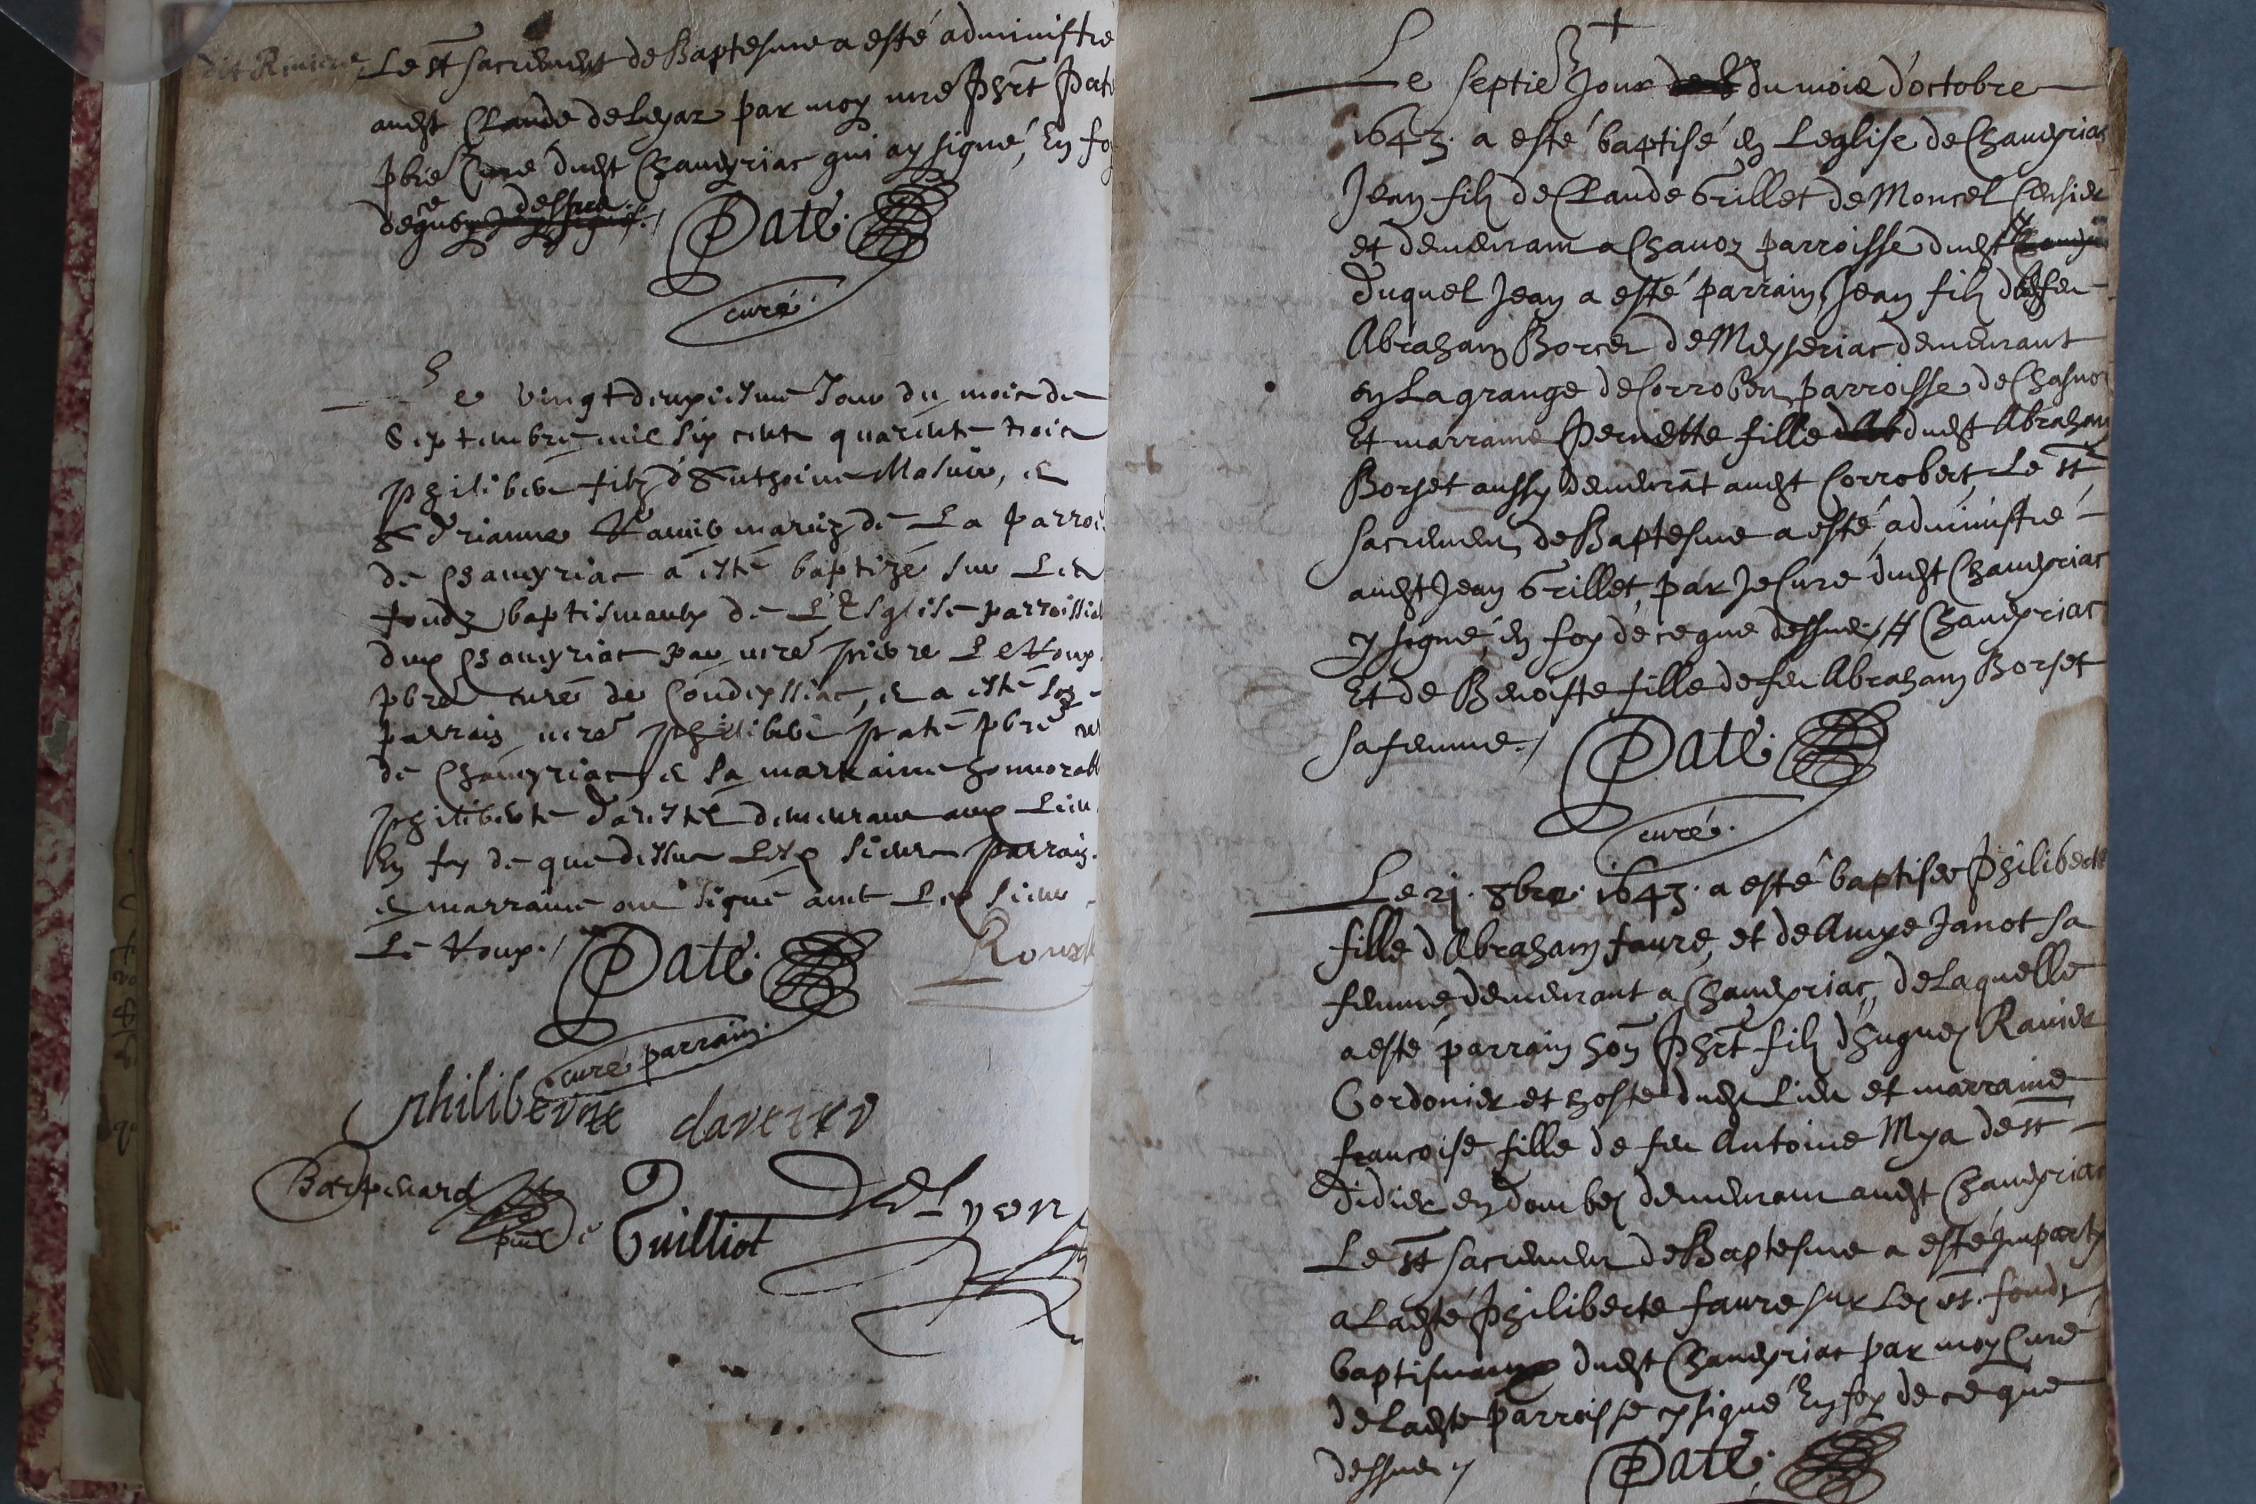 Le st sacrement de Baptesme a esté administre
audt Claude deLeyar par moy mre Phrt Paté
pbre Curé dudt Chaveyriac qui ay signé, En foy
de ce que dessus ./
Paté
curé
Le vingt deuxiesme Jour du mois de
Septembre mil six cents quarente trois
Philibert filz d'Anthoine
Adrianne mariez de La parroi
de Chaveyriac a esté baptizé sur Les
fondz baptismaulx de L'Esglise parroissial
dud Chaveyriac par mre Pierre Le Roux
pbre curé de Condeyssiac, et a esté son
parrain mre Philibert Paté pbre cur
de Chaveyriac et sa marraine honnorabl
Philiberte Daveyse demeurant aud Lieu
En foy de que dessus Lesd sieurs parrain
et marraine ont signé avec Led sieur
Le Roux ./
Paté
Roux
curé parrain
philiberte
Guilliot
DeLyon
Le septie Jour du mois d'octobre
1643. a esté baptisé en Leglise de Chaveyriac
Jean filz de Claude Grillet de Moncel Censier
et demeurant a Chavoz parroisse dudt
Duquel Jean a esté parrain Jean filz de feu
Abraham Borcet de Meyseriac demeurant
en La grange de Corrobert parroisse de Chasno
Et marraine Pernette fille dudt Abraham
Borset aussy demeurāt audt Corrobert, Le st
sacrement de Baptesme a esté administré
audt Jean Grillet, par Je Curé dudt Chaveyriac
cy signé, en foy de ce que dessus ./ # Chaveyriac
Et de Benoiste fille de feu Abraham Borset
sa femme ./
Paté
curé
Le xj. 8bre. 1643. a esté baptisée Philiberte
fille d'Abraham faure, et de Amye Janot sa
femme demeurant a Chaveyriac, de Laquelle
a esté parrain hon Phrt filz d'hugues Ravier
Cordonier et hoste dudt Lieu et marraine
francoise fille de feu Antoine Mya de st
Didier en dombes demeurant audt Chaveyriac
Le st sacrement de Baptesme a esté Imparty
a Ladte Philiberte faure sur Les st. fonds
baptismaux dudt Chaveyriac par moy Curé
de Ladte parroisse cy signé En foy de ce que
dessus ./
Paté